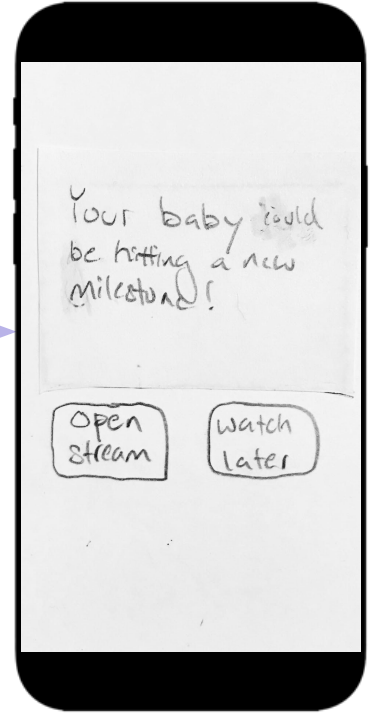 Your baby could
be hitting a new
milestone!
Open
stream
watch
later